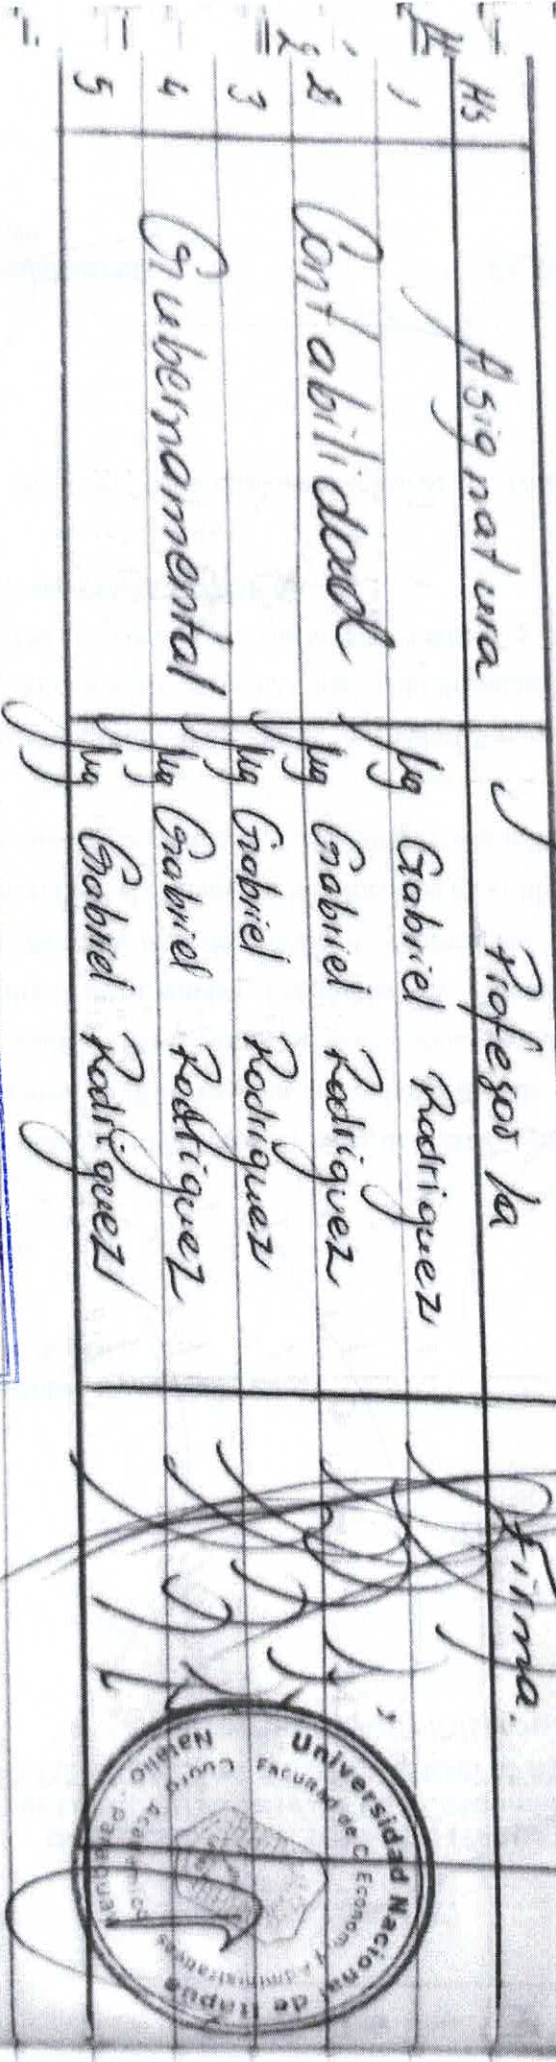 Hs Asignatura Profesor/a Firma.
1 Mg Gabriel Rodriguez
2 Contabilidad Mg Gabriel Rodriguez
3 Mg Gabriel Rodriguez
4 Gubernamental Mg Gabriel Rodriguez
5 Mg Gabriel Rodriguez
Universidad Nacional de Itapúa
Facultad de C. Econom. y Administrativas
Natalio
Paraguay